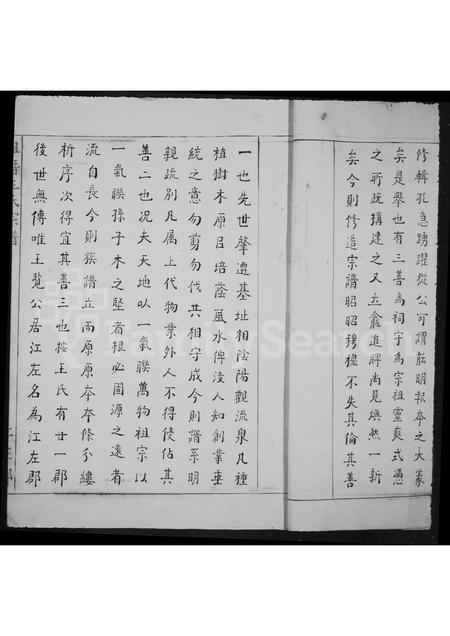 修輯孔急踴躍從公可謂能明報本之大義
矣是舉也有三善焉祠宇為宗祖靈爽式憑
之所既搆建之又立龕進牌尚見煥然一新
矣今則修造宗譜昭昭穆穆不失其倫其善
一也先世聲遷基址相陰陽觀流泉凡種
植樹木原已培蔭風水俾後人知創業垂
統之意勿剪勿伐共相守成今則譜系明
親疏別凡属上代物業外人不得侵佔其
善二也况夫天地以一氣聯萬物祖宗以
一氣聯孫子木之堅者根必固源之遠者
流自長今則族譜立而原原本本條分縷
析序次得宜其善三也按王氏有廿一郡
後世無傳唯王覽公居江左名為江左郡
王氏宗譜
FamilySearch